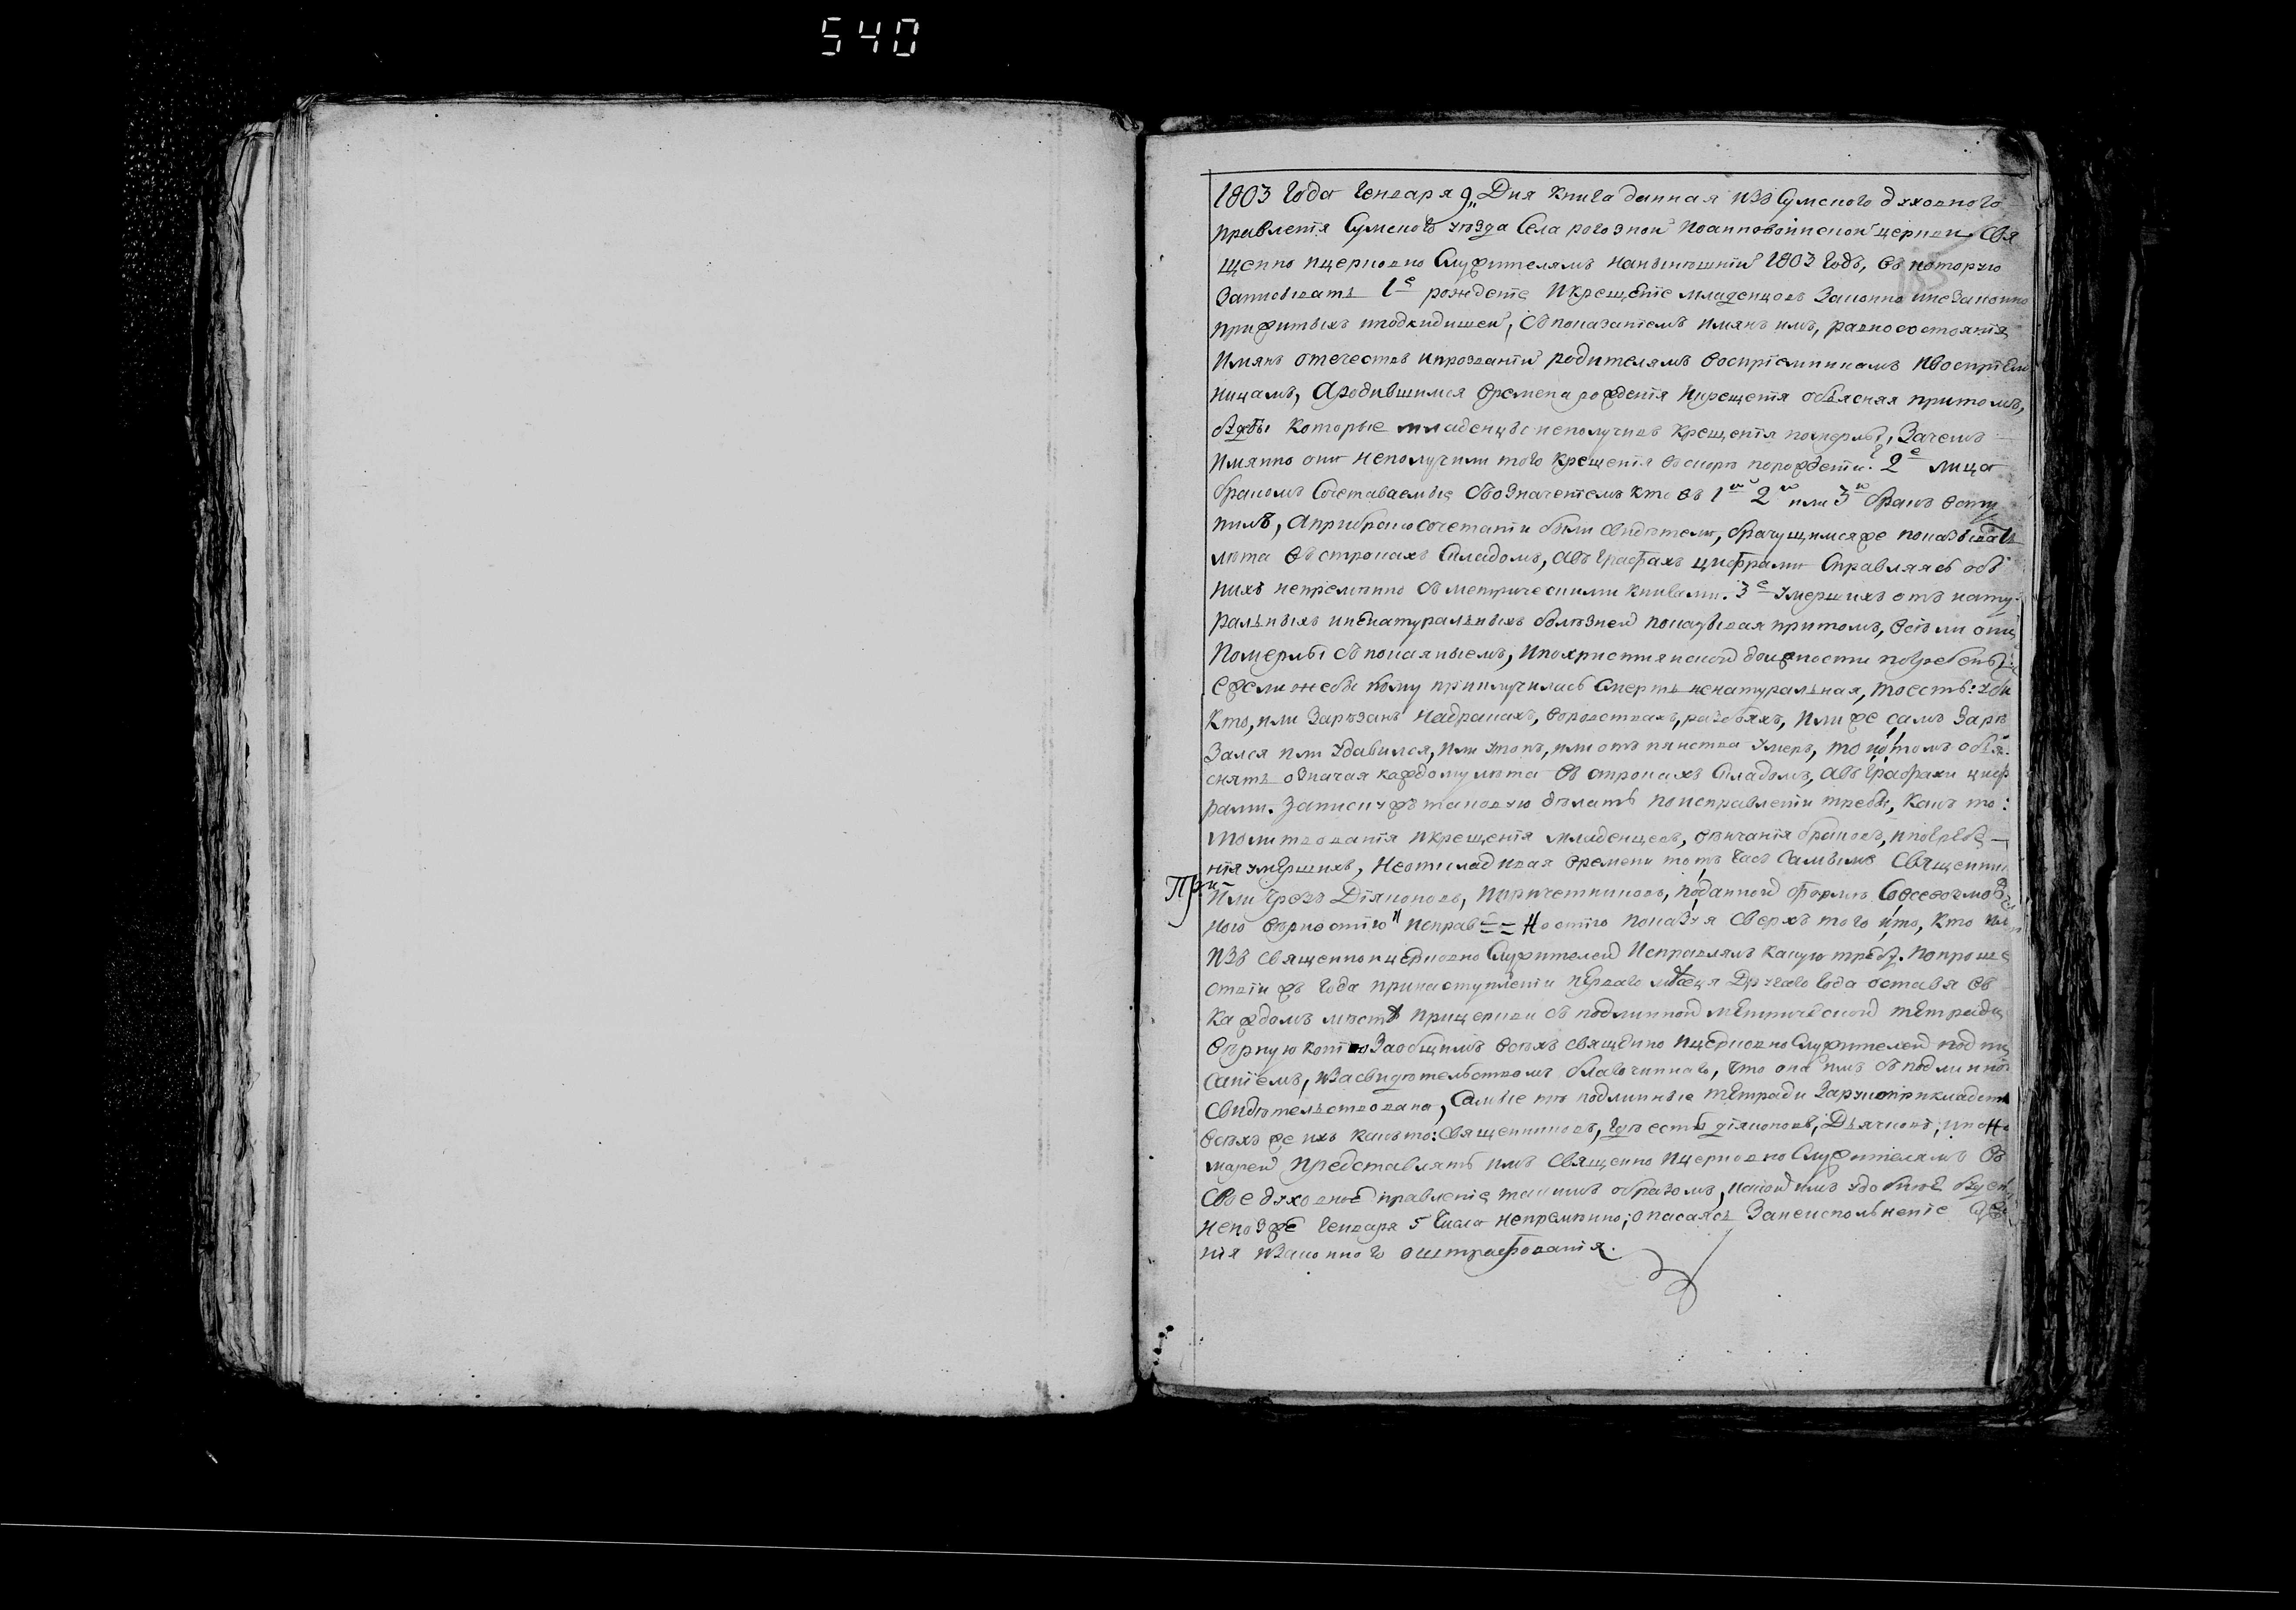 540
1803 года генваря 9„ дня книга данная изъ Сумского духовного
правленія Сумского уезда села рогозной Иоанновоинской церкви Свя
щенно ицерковно служителямъ нанынешній 1803 годъ, въ которую
записывать 1е рождение икрещеніе младенцовъ законно инезаконно
прижитыхъ иподкидишей, споказаніемъ имянъ имъ, равно состоянія
имянъ отечествъ ипрозваній родителямъ воспріемникамъ ивоспріем
ницамъ, Ародившимся времена рожденія икрещенія объясняя притомъ,
буде бы которые младенцы неполучивъ крещенія померлы, зачемъ
имянно они неполучили того крещенія вскоре порожденіи. 2е лица
бракомъ сочетаваемые собозначеніемъ кто въ 1й 2й или 3й бракъ всту
пилъ, априбракосочетаніи были свидетели, брачущимсяже показывать
лета въ строкахъ складомъ, авъ графахъ цифрами справляясь объ
нихъ непременно съ метрическими книгами. 3е умершихъ отъ нату
ральныхъ иненатуральныхъ болезней показывая притомъ, все ли они
померлы съ покаяніемъ, ипохристіянской должности погребены:
ежели жебы кому приключилась смерть ненатуральная, тоесть: убитъ
кто, или зарезанъ надракахъ, воровствахъ, разбояхъ, или же самъ заре
зался или удавился, или утопъ, или отъ пянства умеръ, то ио томъ объя
снять означая каждому лета въ строкахъ складомъ, авъ графахъ циф
рами. Записку жъ таковую делать поисправленіи требы, какъ то:
молитвованія икрещенія младенцевъ, венчанія браковъ, ипогребе
нія умершихъ, неоткладивая времени тотъ часъ самымъ священни
При-
или чрезъ діяконовъ, ипричетниковъ, поданной форме совсевозмож
ною верностію исправностію показуя сверхъ того ито, кто или
изъ священноицерковно служителей исправлялъ какую требу. Попроше
ствіи жъ года принаступленіи перваго месяца другаго года оставя въ
каждомъ месте прицеркви съ подлинной метрической тетради
верную копію заобщимъ всехъ священно ицерковно служителей подпи
саніемъ, изасвидетельствомъ благочиннаго, что она имъ съ подлинной
свидетельствована, самые те подлинные тетради зарукоприкладст
всехъ же ихъ какъто: священниковъ, где есть діяконовъ, Дьячковъ, ипоно
марей представлять имъ священно ицерковно служителямъ въ
свое духовное правленіе такимъ образомъ, какой имъ удобнее будетъ
непозже генваря 5 числа непременно; опасаясь занеисполненіе
нія изаконного оштрафованія.